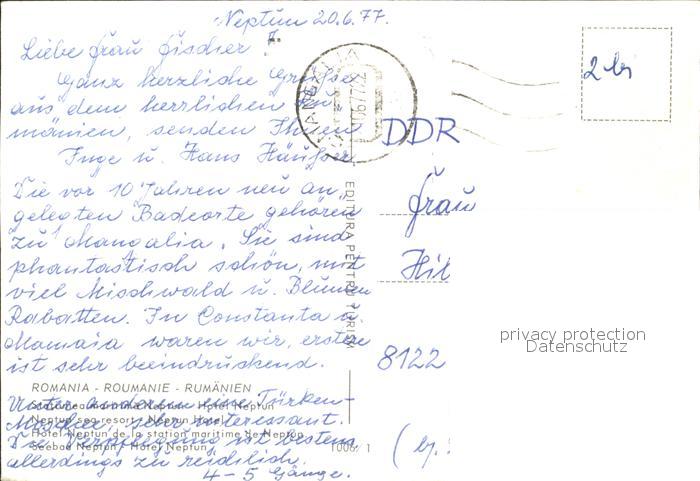 Neptun 20.6.77.
Liebe Frau Fischer!
Ganz herzliche Grüße
aus dem herrlichen Ru
mänien, senden Ihnen
Inge u. Hans Häußer
Die vor 10 Jahren neu an
gelegten Badeorte gehören
zu Mangalia. Sie sind
phantastisch schön, mit
viel Mischwald u. Blumen
Rabatten. In Constanta u.
Mamaia waren wir, erstere
ist sehr beeindruckend.
ROMANIA - ROUMANIE - RUMÄNIEN
Unter anderem eine Türken-
Neptun
Hotel Neptun
Moschee, sehr interessant.
Neptun sea resort
Hotel Neptun de la station maritime de Neptun
Die Verpflegung ist bestens
Seebad Neptun Hotel Neptun
1006/1
allerdings zu reichlich.
4-5 Gänge.
EDITURA PENTRU TURISM
2 bi
DDR
Frau
Hil
8122
privacy protection
Datenschutz